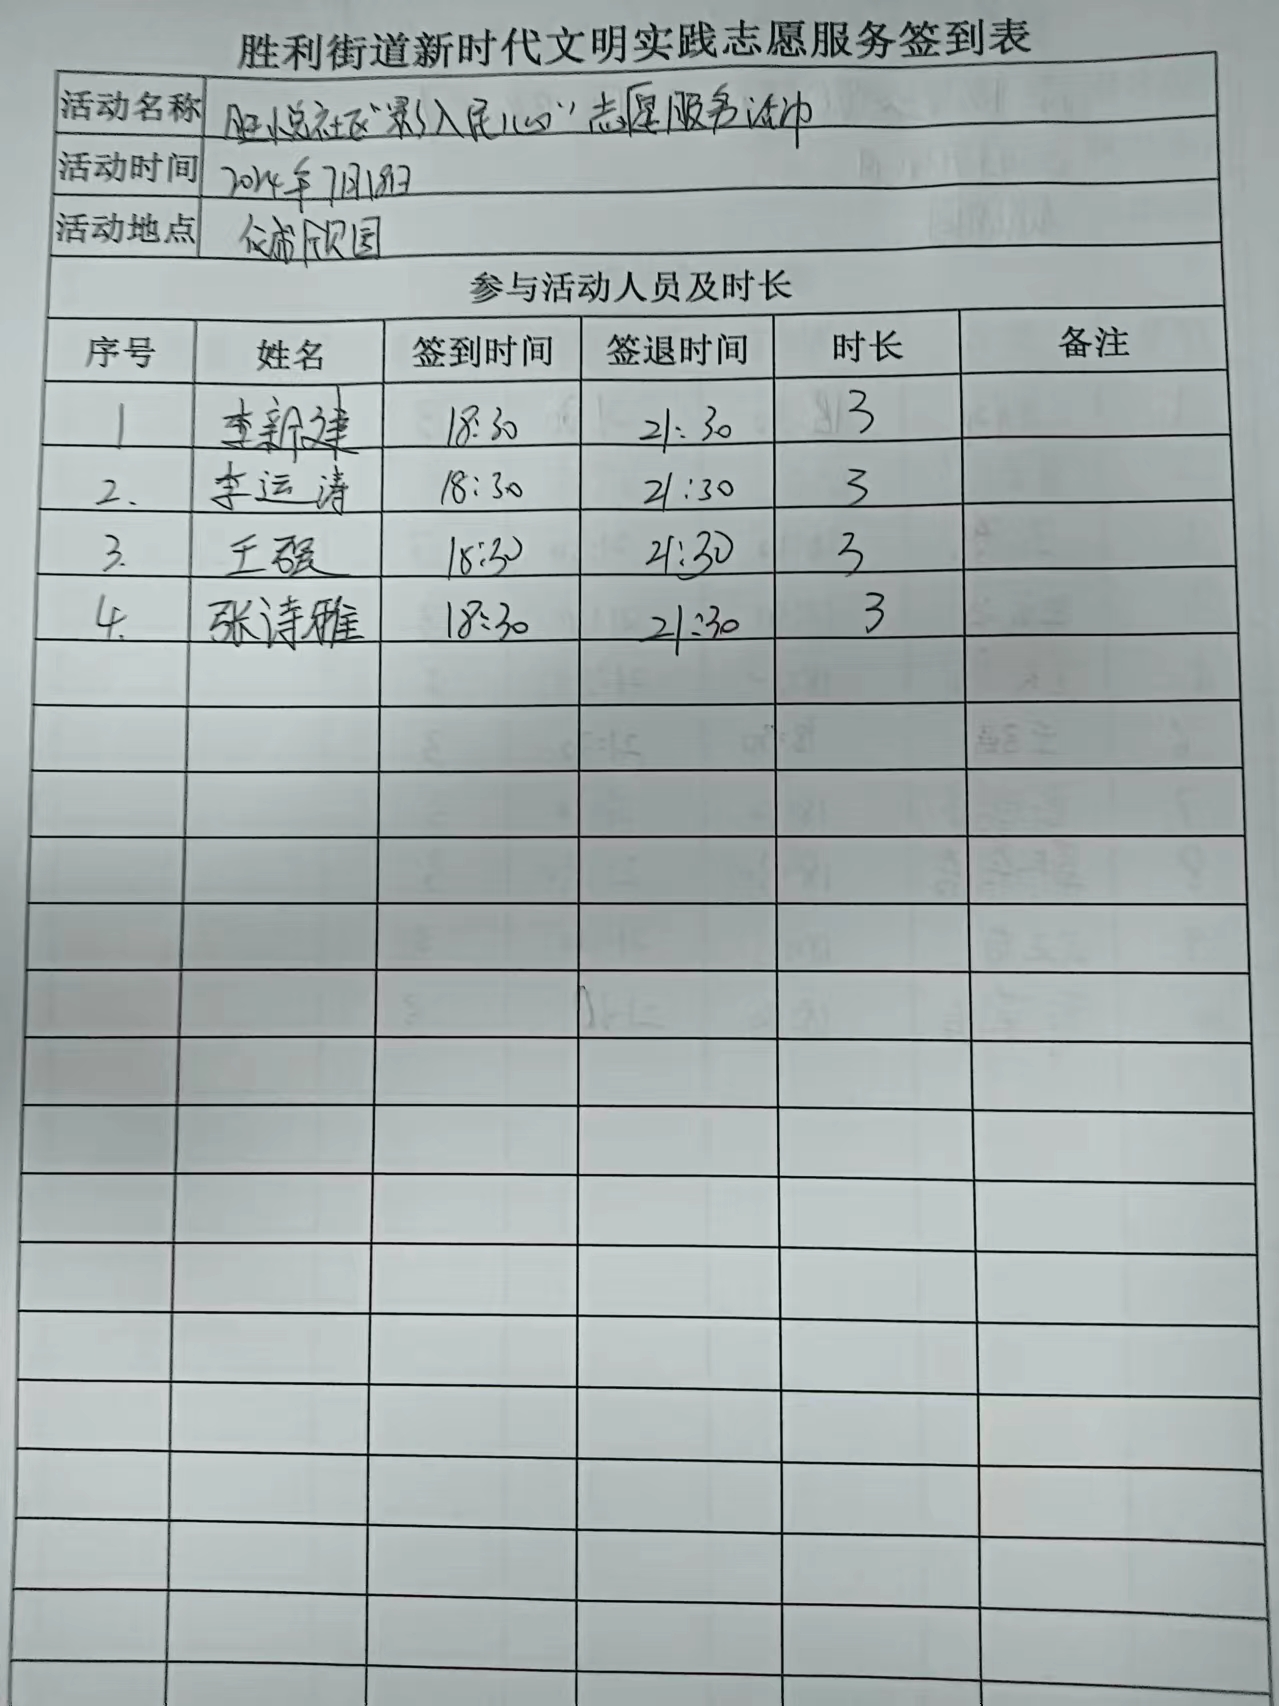 胜利街道新时代文明实践志愿服务签到表
活动名称 旺悦社区“影入民心”志愿服务活动
活动时间 2024年7月18日
活动地点 欣园
参与活动人员及时长
序号 姓名 签到时间 签退时间 时长 备注
1 李新建 18:30 21:30 3
2. 李运涛 18:30 21:30 3
3. 王强 18:30 21:30 3
4. 张诗雅 18:30 21:30 3